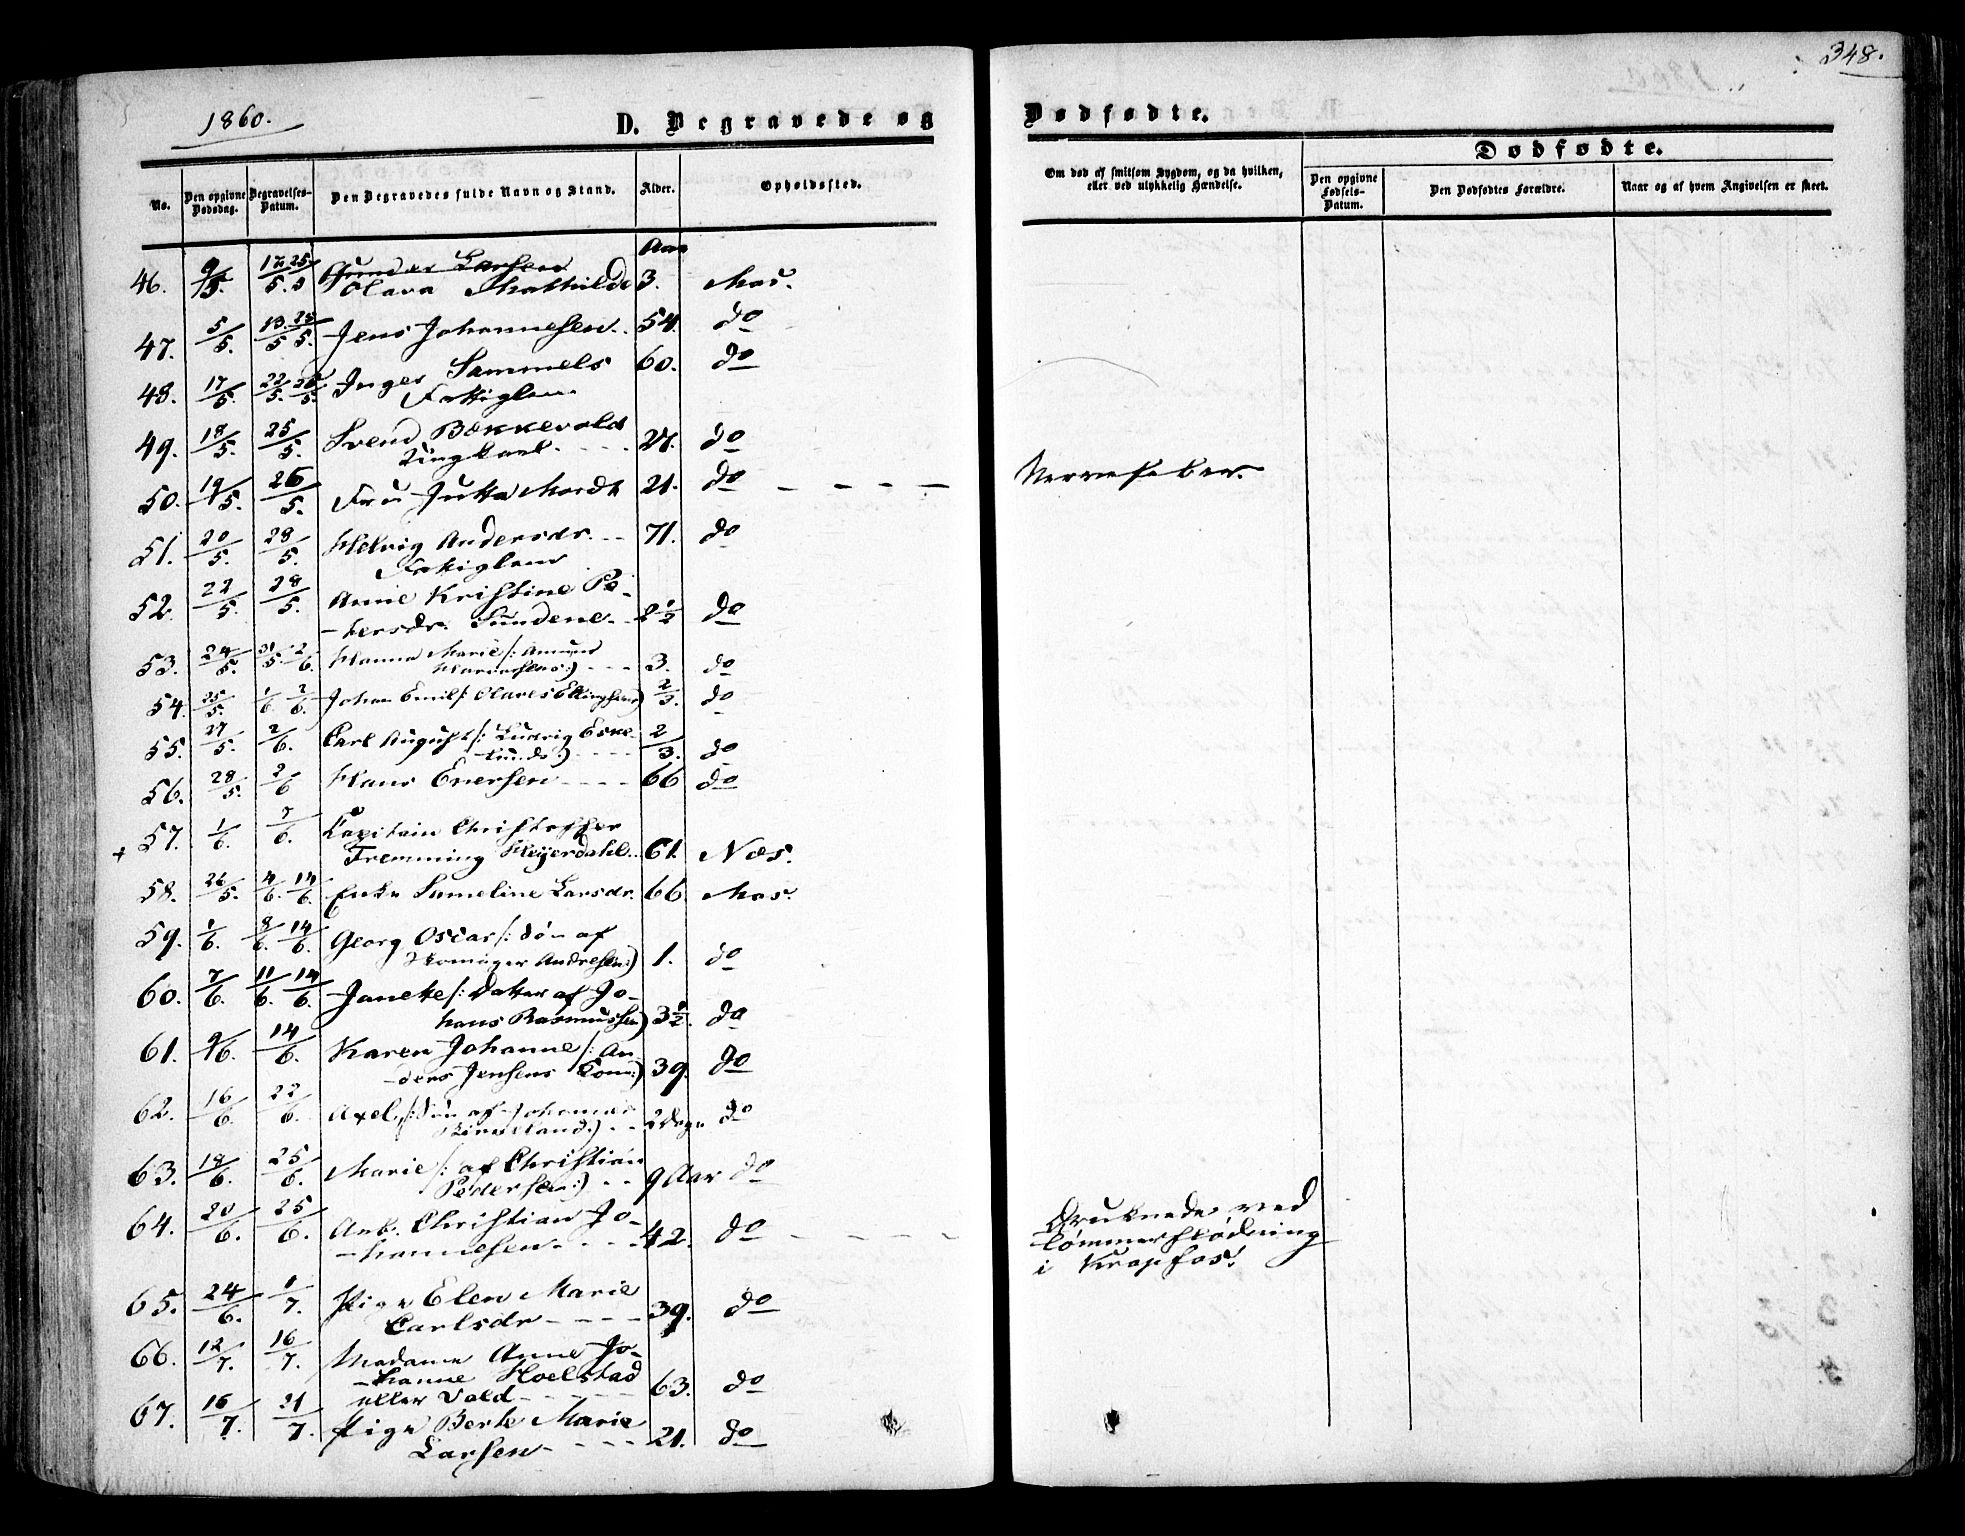 348.
1860.
D. Begravede og
Dødfødte.
No.
Den opgivne Dødsdag.
Begravelses-Datum.
Den Begravedes fulde Navn og Stand.
Alder.
Opholdssted.
Om død af smitsom Sygdom, og da hvilken,
eller ved ulykkelig Hændelse.
Dødfødte.
Den opgivne Fødsels-Datum.
Den Dødfødtes Forældre.
Naar og af hvem Angivelsen er skeet.
Aar
Gunder Larsen
46. 9/5. 12/5. 25/5 Olava Mathilde 3. Mos.
47. 5/5. 13/5 25/5. Jens Johannesen 54. do
48. 17/5. 22/5. 26/5. Inger Sammels 60. do
Fattiglem.
49. 18/5. 25/5. Svend Bækkevold
Ungkarl. - - - 24. do
50. 19/5. 26/5. Fru Jutta Mordt 21. do - - - - Nervefeber.
51. 20/5. 28/5. Helvig Andersdr. - - 71. do
Fattiglem
52. 22/5. 28/5. Anne Kristine Pe-
-tersdr. Sundene - - 2 1/2 do
53. 24/5. 31/5. 2/6. Hanna Marie /: Amund
:) - - - 3. do
54. 25/5. 1/6 2/6. Johan Emil /: Olaves Ellingsens) 2/3. do
55. 27/5. 2/6. Carl August /: Ludvig Eske-
-lunds:) - - - - 2/3. do
56. 28/5. 2/6 Hans Enersen - - - - 66 do
+ 57. 1/6. 7/6. Capitain Christoffer
Fremming Heyerdahl. 61. Næs.
58. 26/5. 4/6. 14/6. Enke Sameline Larsdr. 66 Mos.
59. 1/6. 8/6. 14/6. Georg Oscar /: Søn af
Skomager Andresen:) 1. do
60. 7/6. 11/6. 14/6. Janeke /: Datter af Jo-
hans Rasmussen) 3 1/2. do
61. 9/6. 14/6. Karen Johanne /: An-
-ders Jensens Kone:) 39. do
62. 16/6. 22/6. Axel, /: Søn af Johannes
:) - - 2 Dage do
63. 18/6. 25/6. Marie /: af Christian
Pedersen:) - - 9 Aar do
64. 20/6. 25/6. Arb. Christian Jo-
-hannesen - - - - 42. do - - - - Druknede ved
Tømmerflødning
i Kropfos.
65. 24/6. 1/7. Pige Elen Marie
Carlsdr - - - - 39. do
66. 12/7. 16/7. Madame Anne Jo-
-hanne Hoelstad
eller Vold - - - - 63. do
67. 16/7. 21/7. Pige Berte Marie
Larsen - - - - 21. do